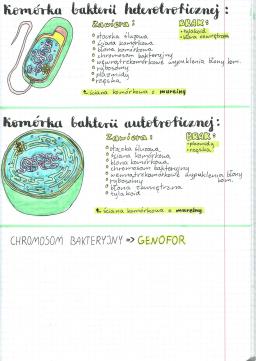 Komórka bakterii heterotroficznej:
Zawiera:
BRAK:
• tylakoid
• błona zewnętrzna
• otoczka śluzowa
• ściana komórkowa
• błona komórkowa
• chromosom bakteryjny
• wewnątrzkomórkowe wypuklenia błony kom.
• rybosomy
• plazmidy
• rzęska
ściana komórkowa z mureiny
Komórka bakterii autotroficznej:
Zawiera:
BRAK:
• plazmidy
• rzęska
• otoczka śluzowa
• ściana komórkowa
• błona komórkowa
• chromosom bakteryjny
• wewnątrzkomórkowe wypuklenia błony kom.
• rybosomy
• błona zewnętrzna
• tylakoid
ściana komórkowa z mureiny
CHROMOSOM BAKTERYJNY => GENOFOR